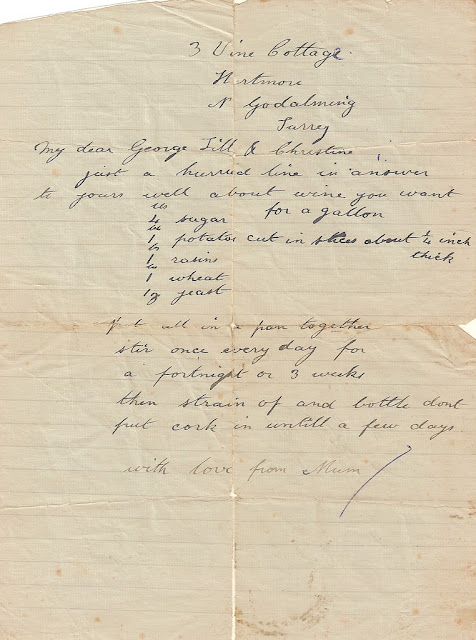 3 Vine Cottage
Hurtmore
N Godalming
Surrey
My dear George Jill & Christine
just a hurried line in answer
to yours well about wine you want
lbs
4 sugar for a gallon
lb
1 potatoe cut in slices about 1/4 inch
lb
1 rasins thick
lb
1 wheat
1 oz yeast
Put all in a pan together
stir once every day for
a fortnight or 3 weeks
then strain of and bottle dont
put cork in untill a few days
with love from Mum